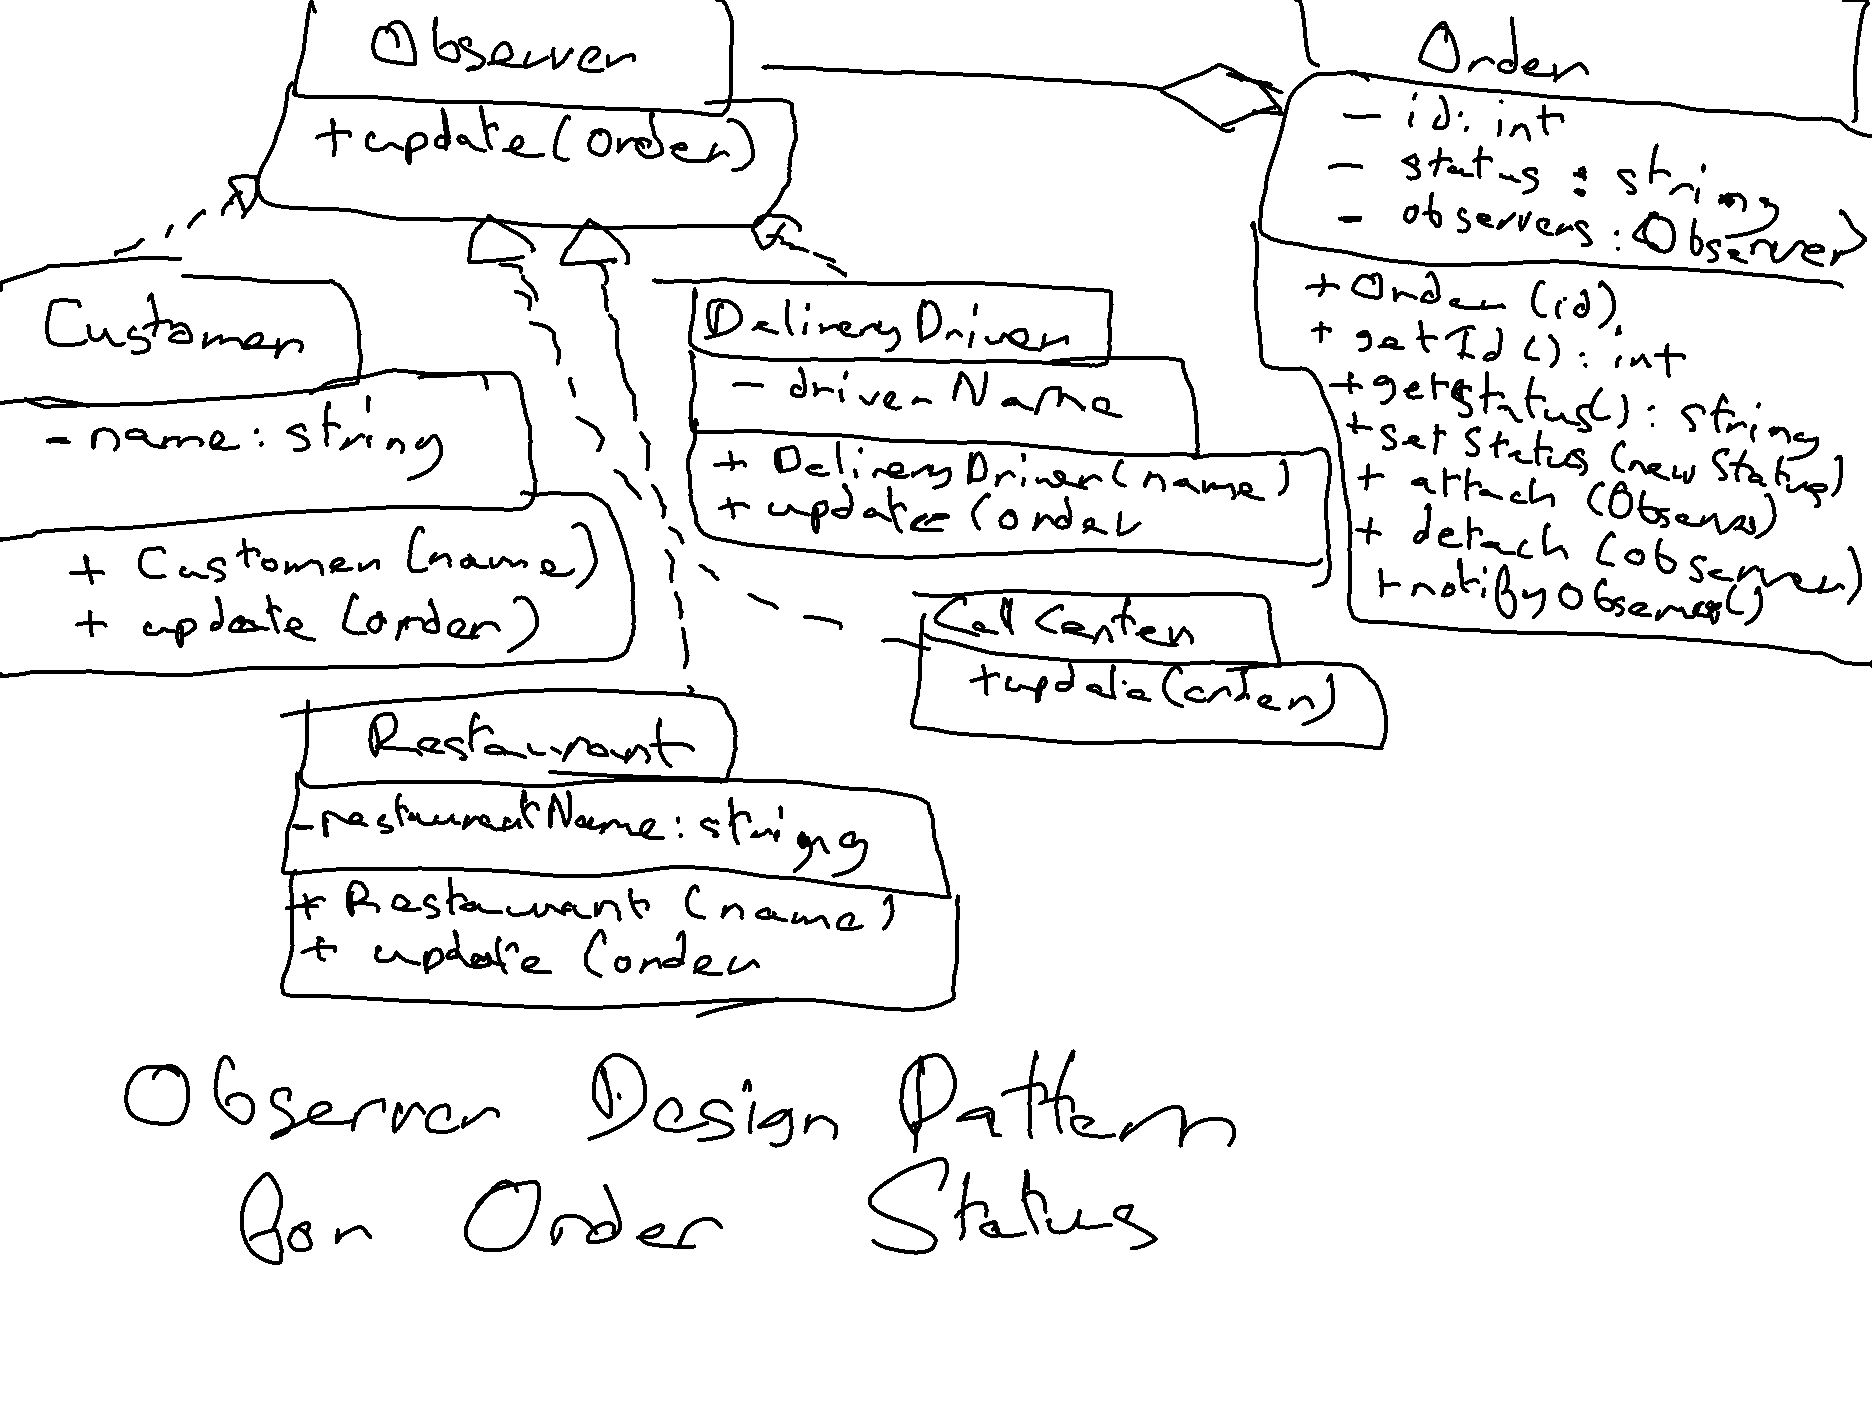 Observer
+ update(order)
Order
- id: int
- status : string
- observers : Observer
+ Order (id)
+ getId() : int
+ getStatus() : string
+ setStatus (newStatus)
+ attach (Observer)
+ detach (observer)
+ notifyObserver()
Customer
- name : string
+ Customer (name)
+ update (order)
DeliveryDriver
- driverName
+ DeliveryDriver (name)
+ update (order
Call Center
+ update (order)
Restaurant
- restaurantName : string
+ Restaurant (name)
+ update (order
Observer Design Pattern
for Order Status